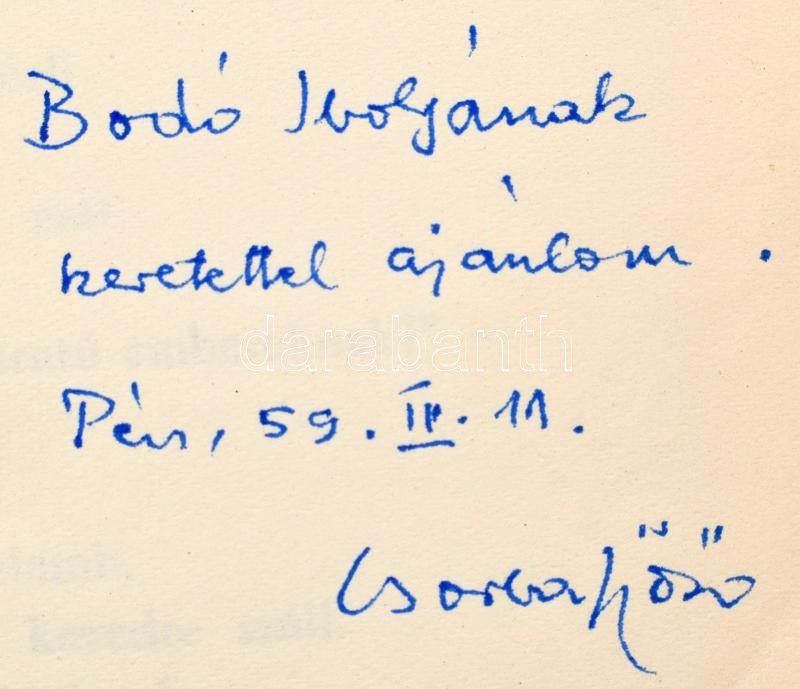 Bodó Ibolyának
szeretettel ajánlom.
Pécs, 59. IV. 11.
Csorba Győző
darabanth